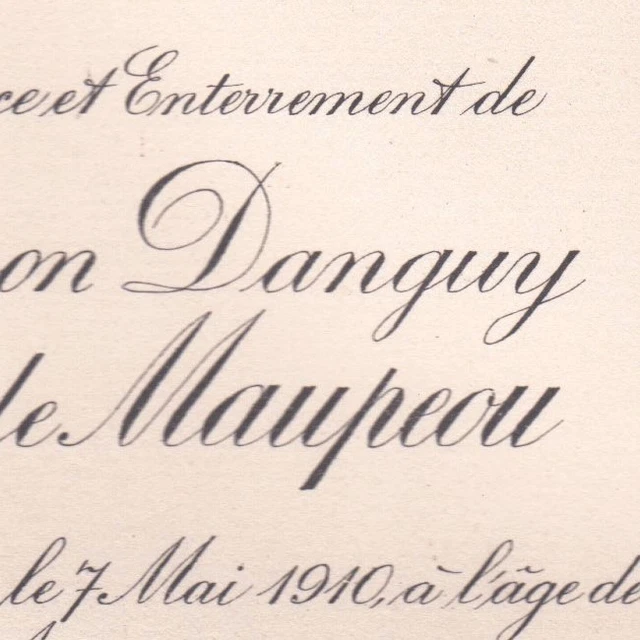 ce et Enterrement de
on Danguy
de Maupeou
le 7 Mai 1910, à l'âge de